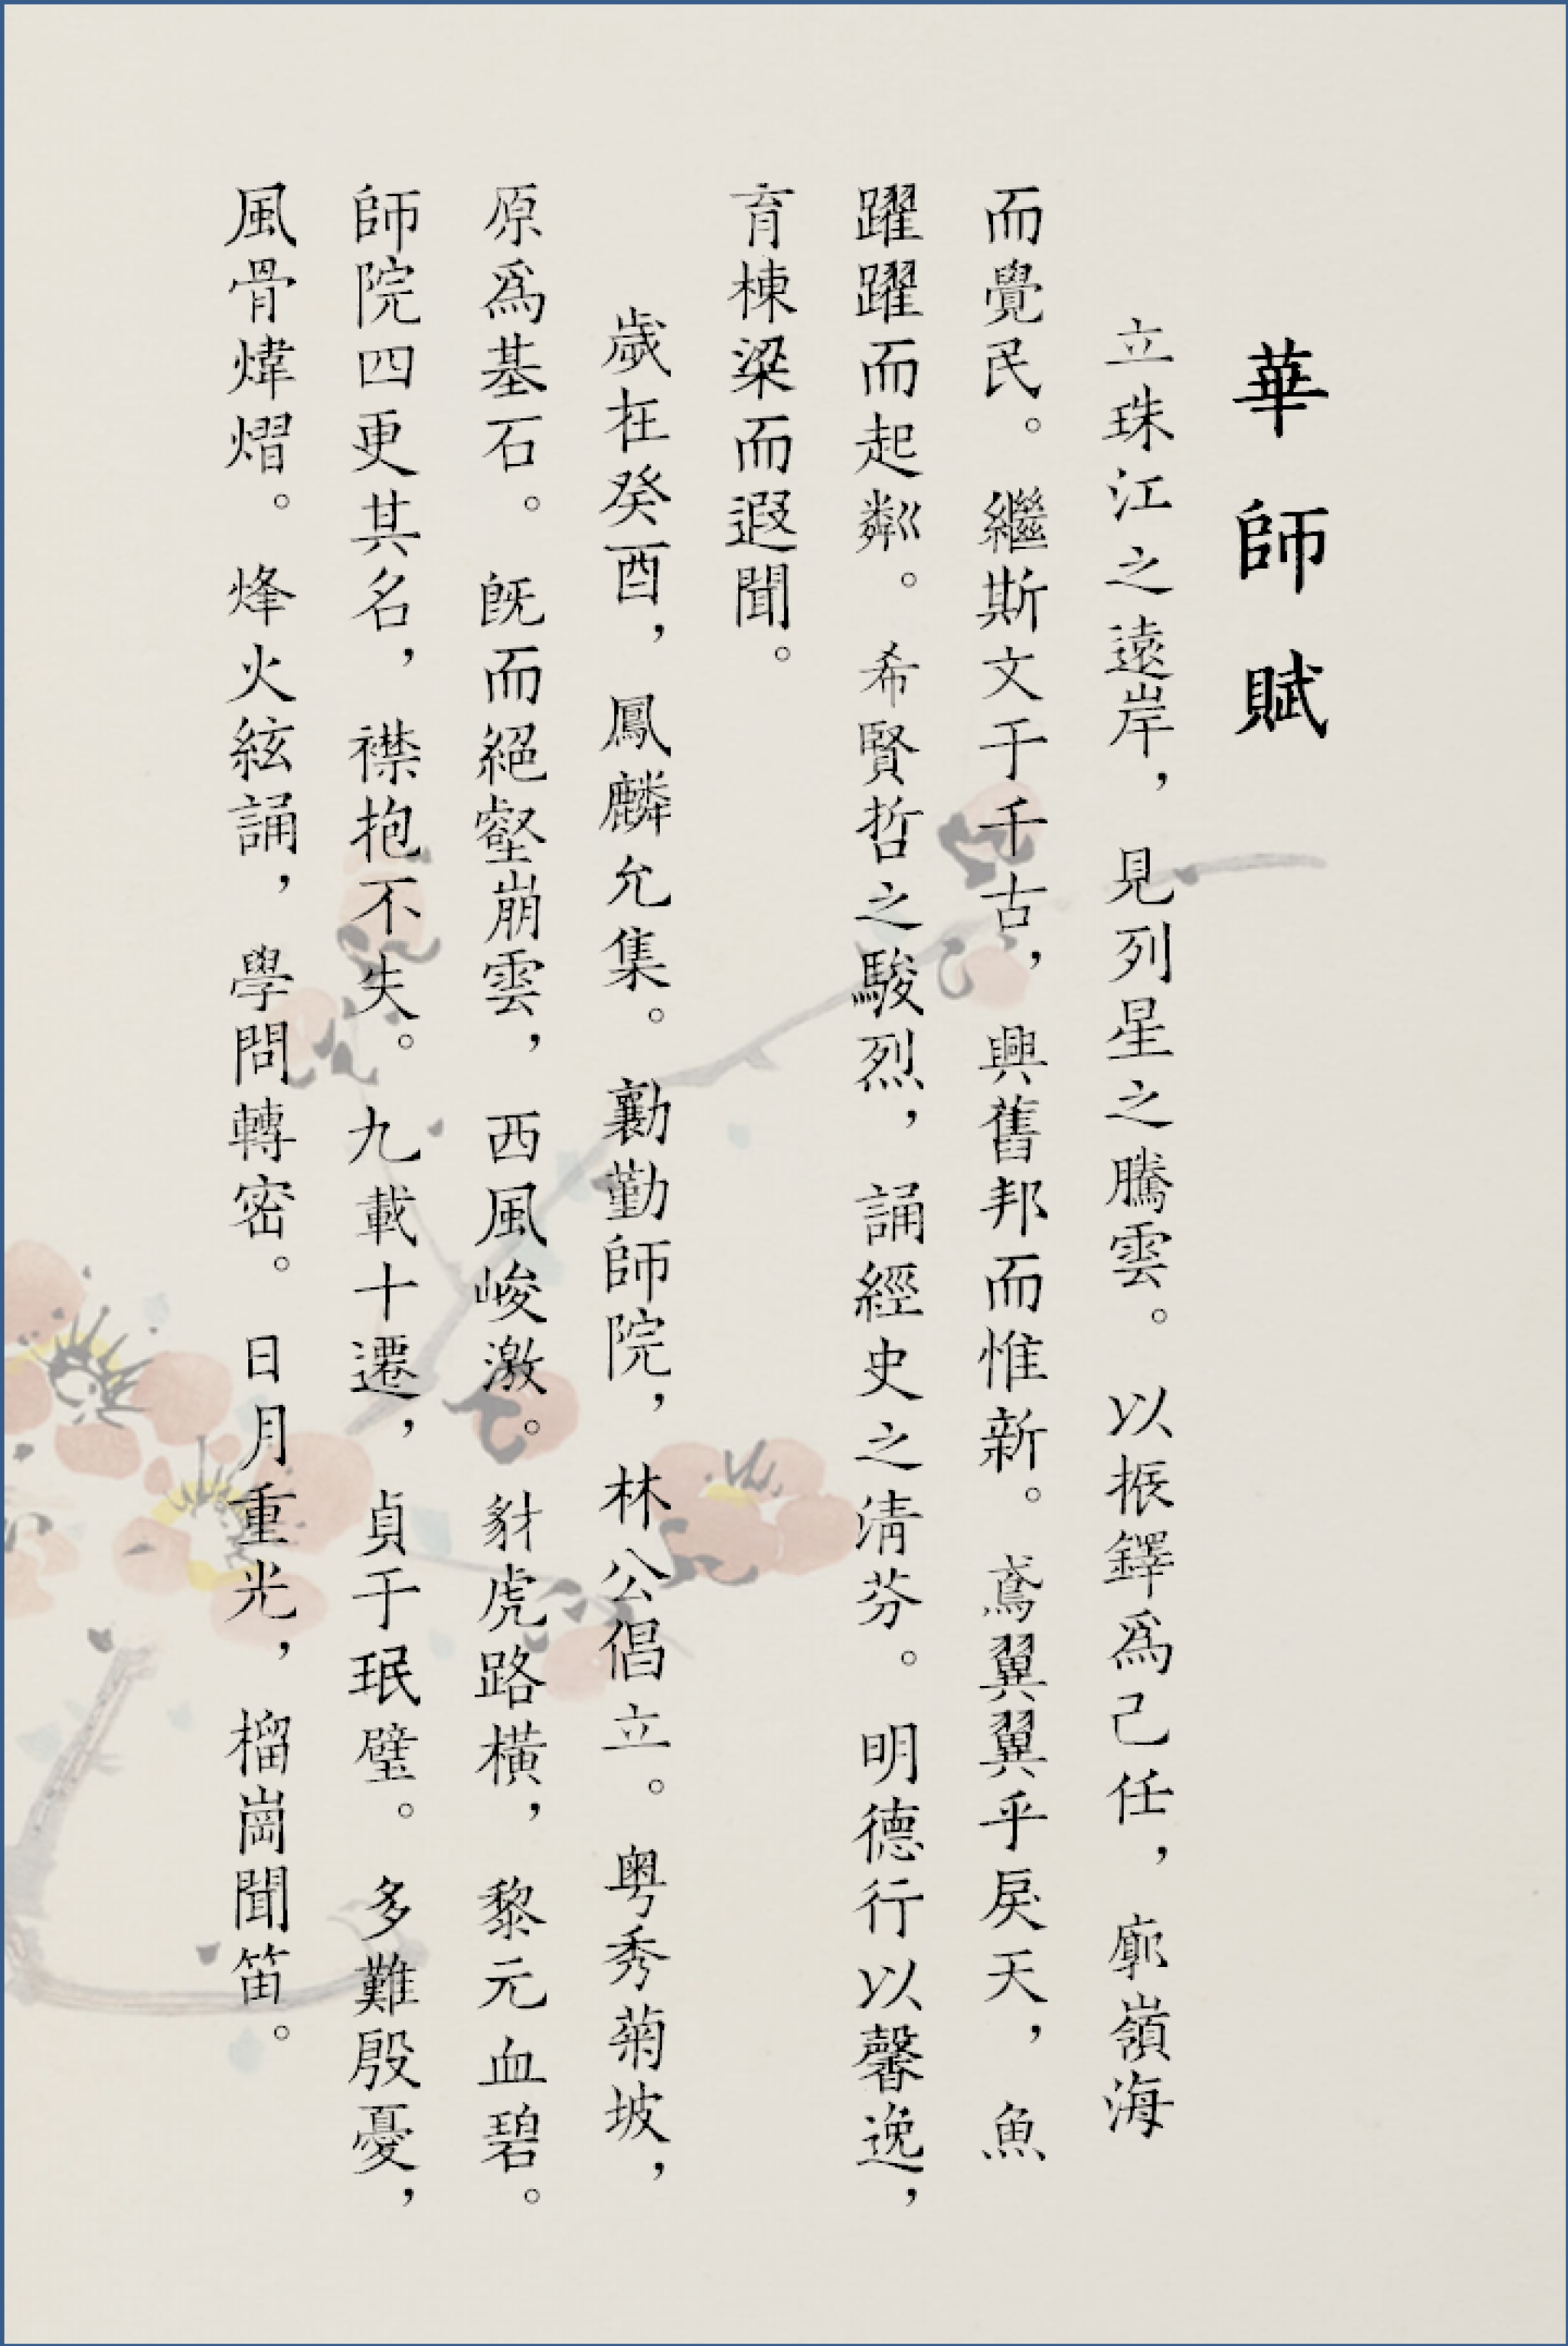 華師賦
立珠江之遠岸，見列星之騰雲。以振鐸爲己任，廓嶺海
而覺民。繼斯文于千古，興舊邦而惟新。鳶翼翼乎戾天，魚
躍躍而起粼。希賢哲之駿烈，誦經史之清芬。明德行以馨逸，
育棟梁而遐聞。
歲在癸酉，鳳麟允集。勷勤師院，林公倡立。粤秀菊坡，
原爲基石。旣而絕壑崩雲，西風峻激。豺虎路橫，黎元血碧。
師院四更其名，襟抱不失。九載十遷，貞于珉璧。多難殷憂，
風骨煒熠。烽火絃誦，學問轉密。日月重光，榴崗聞笛。